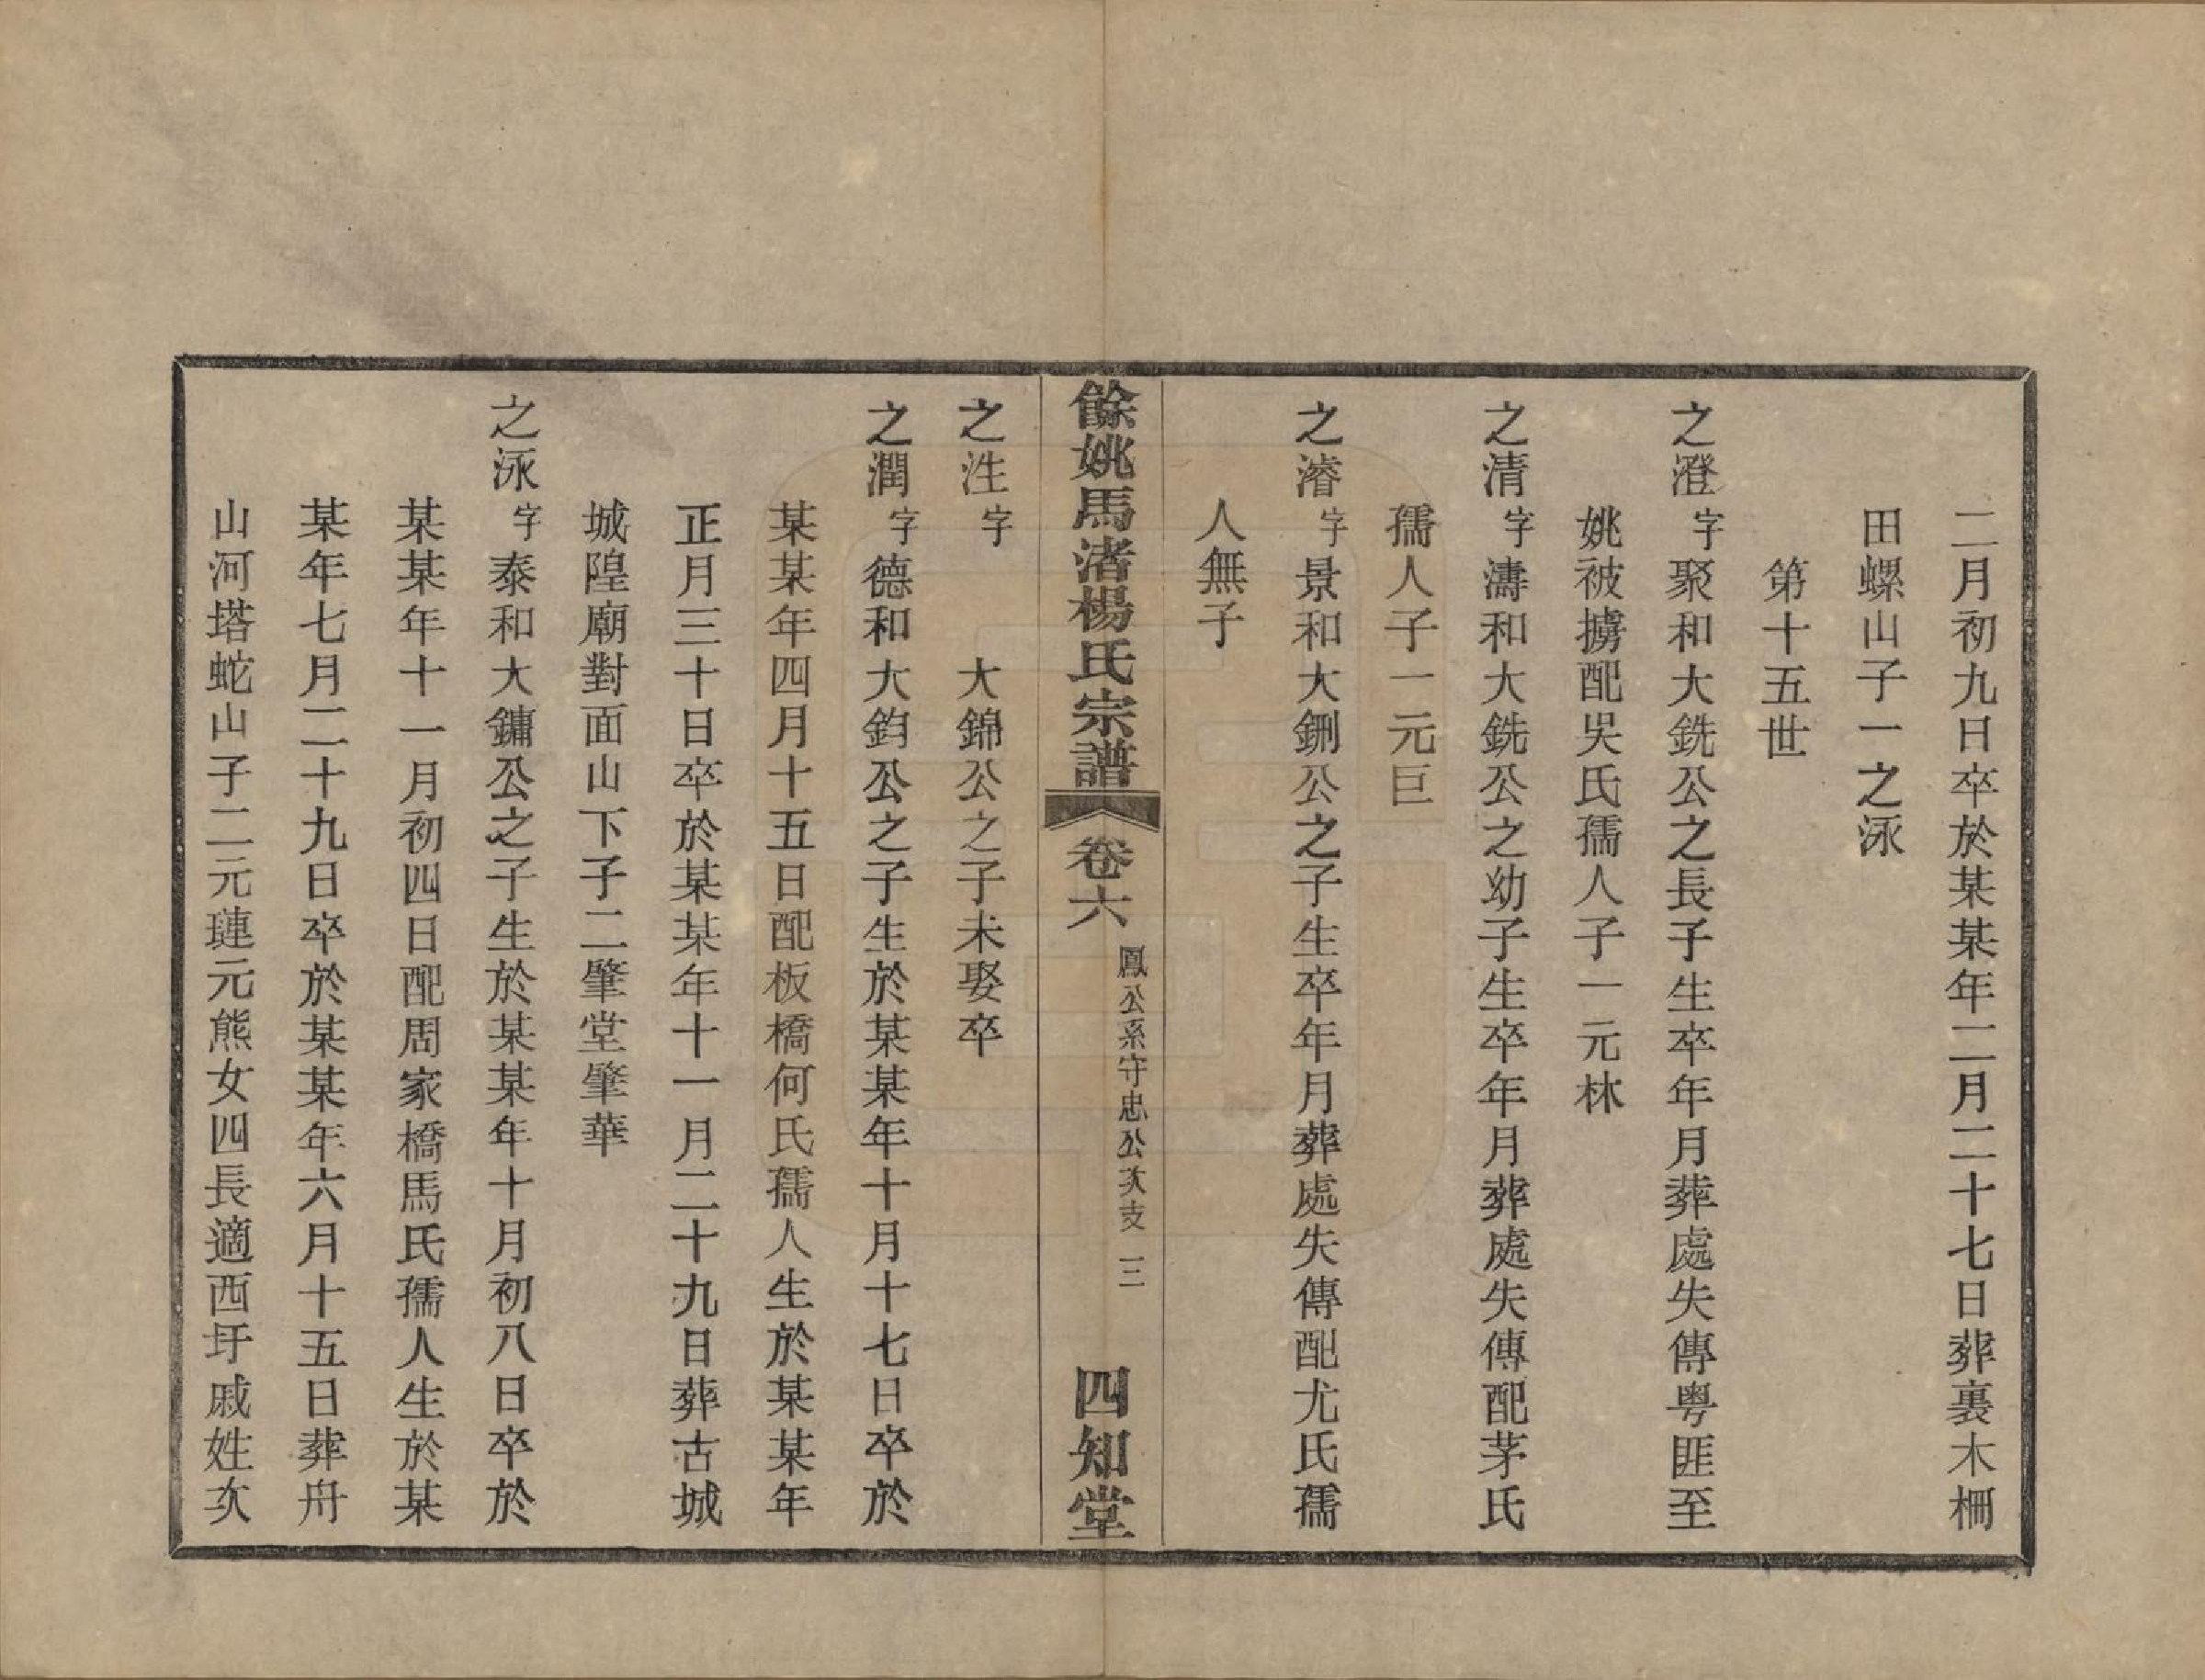 二月初九日卒於某某年二月二十七日葬裏木柵
田螺山子一之泳
第十五世
之澄字聚和大銑公之長子生卒年月葬處失傳粵匪至
姚被擄配吳氏孺人子一元林
之清字濤和大銑公之幼子生卒年月葬處失傳配茅氏
孺人子一元巨
之濬字景和大鉶公之子生卒年月葬處失傳配尤氏孺
人無子
餘姚馬渚楊氏宗譜 卷六 鳳公系守忠公次支 三 四知堂
之泩字 大錦公之子未娶卒
之潤字德和大鈞公之子生於某某年十月十七日卒於
某某年四月十五日配板橋何氏孺人生於某某年
正月三十日卒於某某年十一月二十九日葬古城
城隍廟對面山下子二肇堂肇華
之泳字泰和大鏞公之子生於某某年十月初八日卒於
某某年十一月初四日配周家橋馬氏孺人生於某
某年七月二十九日卒於某某年六月十五日葬冄
山河塔蛇山子二元璉元熊女四長適西圩戚姓次